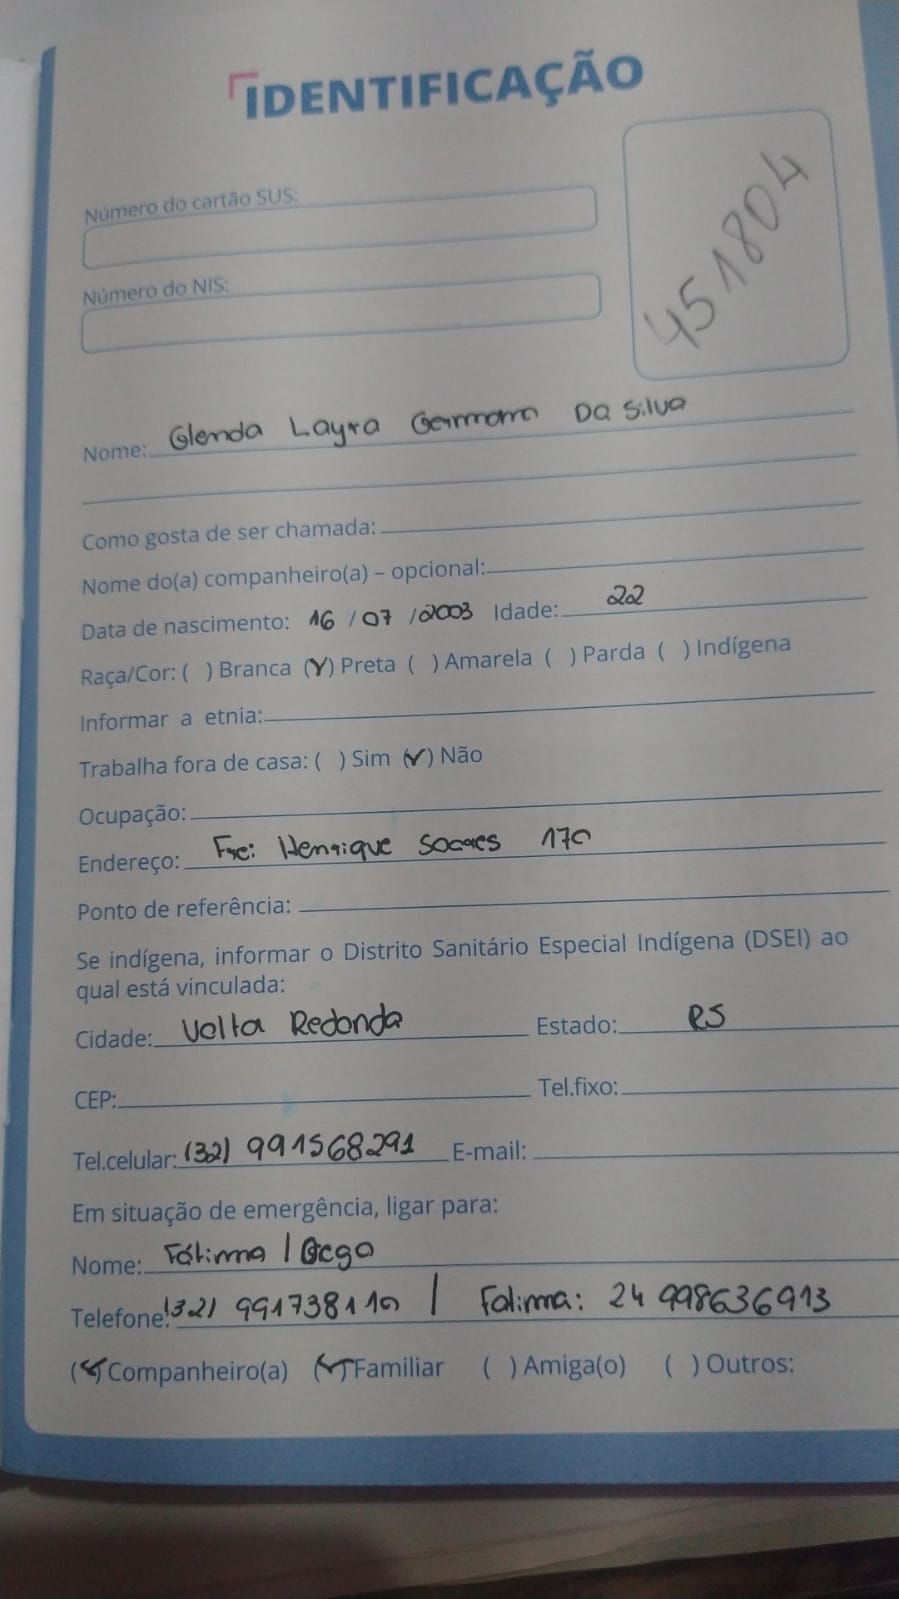 IDENTIFICAÇÃO
451804
Número do cartão SUS:
Número do NIS:
Nome: Glenda Layra Germano Da Silva
Como gosta de ser chamada:
Nome do(a) companheiro(a) – opcional:
Data de nascimento: 16 / 07 / 2003 Idade: 22
Raça/Cor: ( ) Branca (✓) Preta ( ) Amarela ( ) Parda ( ) Indígena
Informar a etnia:
Trabalha fora de casa: ( ) Sim (✓) Não
Ocupação:
Endereço: Henrique Soares 170
Ponto de referência:
Se indígena, informar o Distrito Sanitário Especial Indígena (DSEI) ao
qual está vinculada:
Cidade: Volta Redonda Estado: RS
CEP: Tel.fixo:
Tel.celular: (32) 991568291 E-mail:
Em situação de emergência, ligar para:
Nome: Fátima /
Telefone: (32) 991738110 / Fatima: 24 998636913
(✓) Companheiro(a) (✓) Familiar ( ) Amiga(o) ( ) Outros: